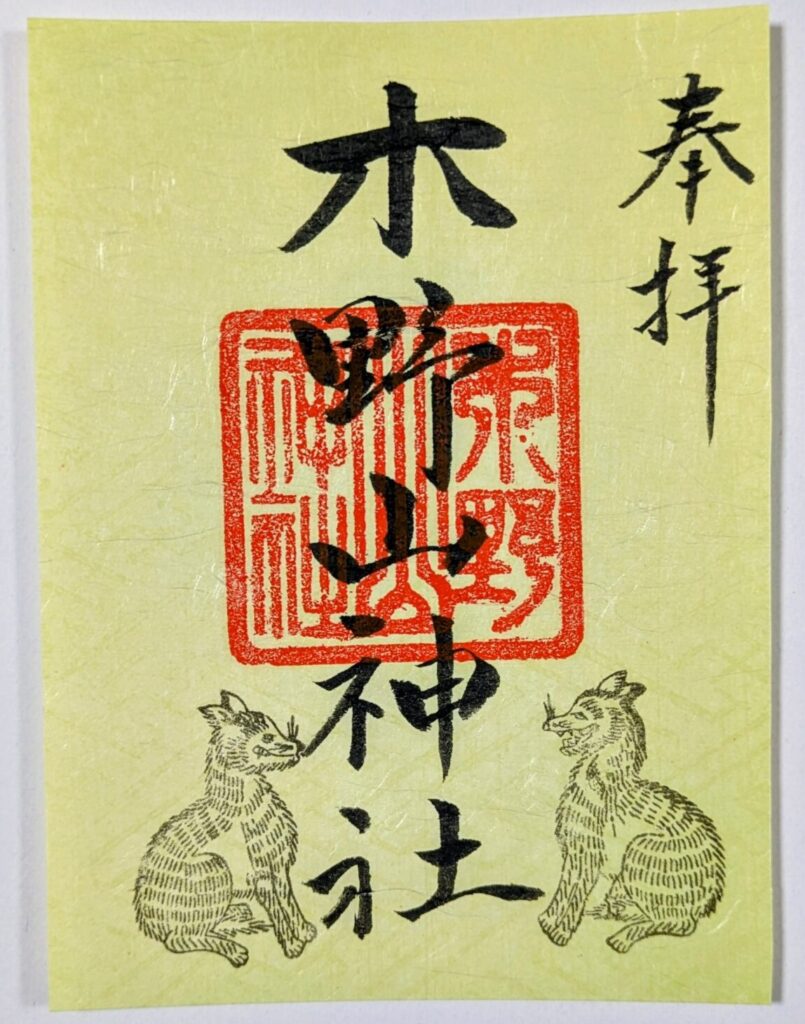 奉拝
木野山神社
木野山神社